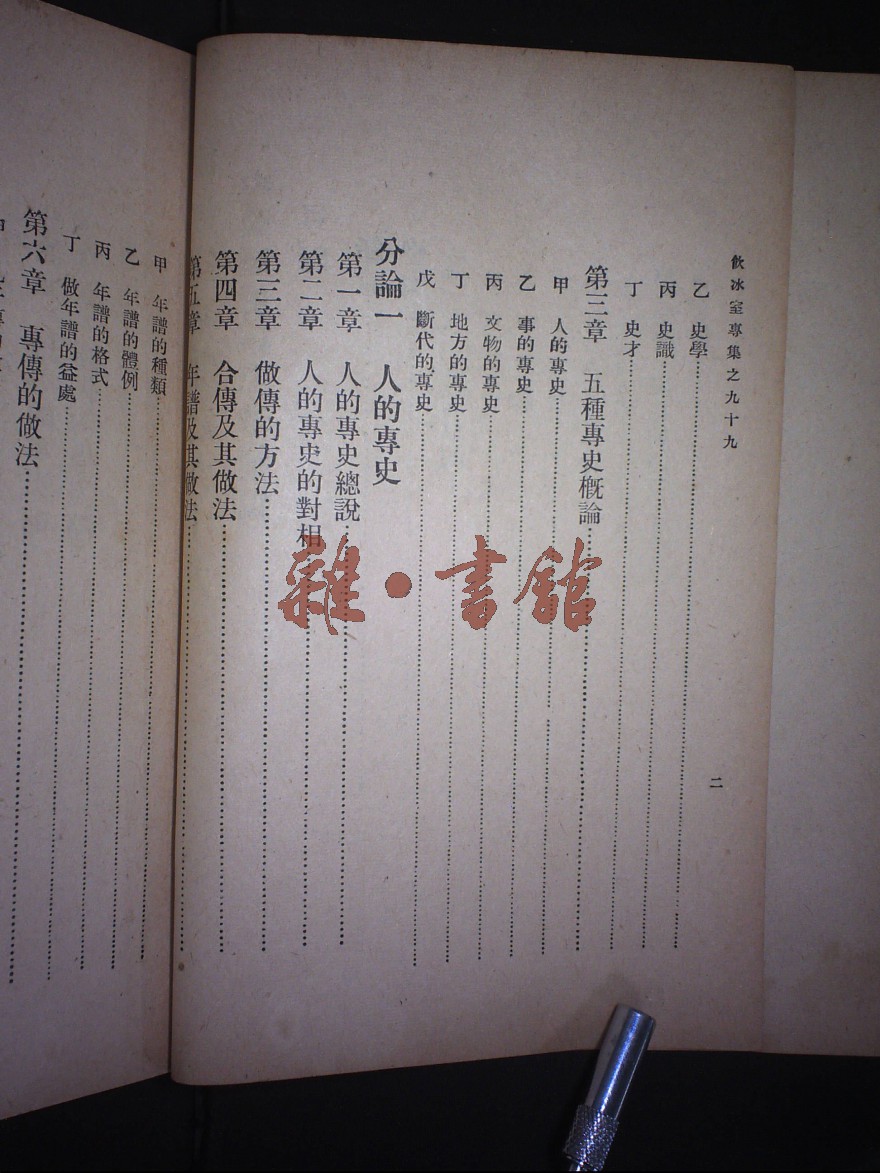 飲冰室專集之九十九
二
乙 史學
丙 史識
丁 史才
第三章 五種專史概論
甲 人的專史
乙 事的專史
丙 文物的專史
丁 地方的專史
戊 斷代的專史
分論一 人的專史
第一章 人的專史總說
第二章 人的專史的對相
第三章 做傳的方法
第四章 合傳及其做法
第五章 年譜及其做法
甲 年譜的種類
乙 年譜的體例
丙 年譜的格式
丁 做年譜的益處
第六章 專傳的做法
雜·書館